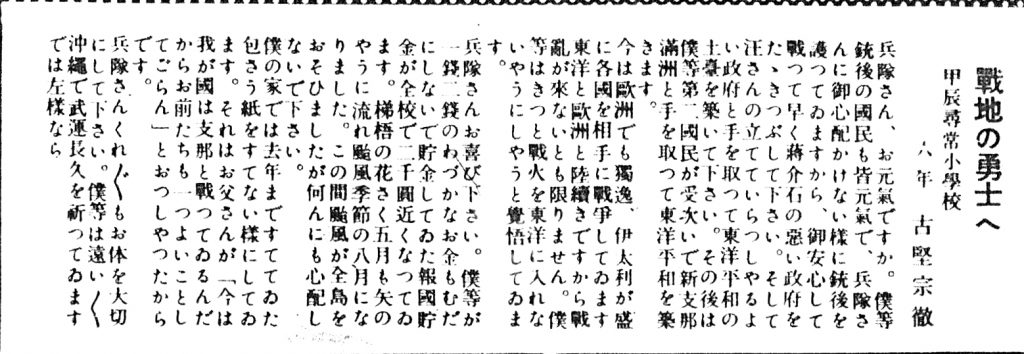 戰地の勇士へ
甲辰尋常小學校
六年 古堅宗徹
兵隊さん、お元氣ですか。僕等
銃後の國民も皆元氣で、兵隊さ
んに御心配かけない樣に銃後を
護つてゐますから、御安心して
戰つて早く蔣介石の惡い政府を
たゝきつぶして下さい。そして
汪さんの立てていらつしやるよ
い政府と手を取つて東洋平和の
土臺を築いて下さい。その後は
僕等第二國民が受次いで新支那
滿洲と手を取つて東洋平和を築
きます。
今は歐洲でも獨逸、伊太利が盛
に各國を相手に戰爭してゐます
東洋と歐洲と陸續きですから戰
亂が來ないとも限りません。僕
等はきつと戰火を東洋に入れな
いやうにしやうと覺悟してゐま
す。
兵隊さんお喜び下さい。僕等が
一錢二錢のわづかなお金もむだ
にしないで貯金してゐた報國貯
金が全校で二千圓近くなつてゐ
ます。梯梧の花さく五月も矢の
やうに流れ颱風季節の八月にな
りました。この間颱風が全島を
おそひましたが何んにも心配し
ないで下さい。
僕の家では去年まですてゝゐた
包さう紙をすてない樣にしてゐ
ます。それはお父さんが「今は
我が國は支那と戰つてゐるんだ
からお前たちも一つよいことし
てごらん」とおつしやつたから
です。
兵隊さんくれ〲もお体を大切
にして下さい。僕等は遠い〱
沖繩で武運長久を祈つてゐます
では左樣なら